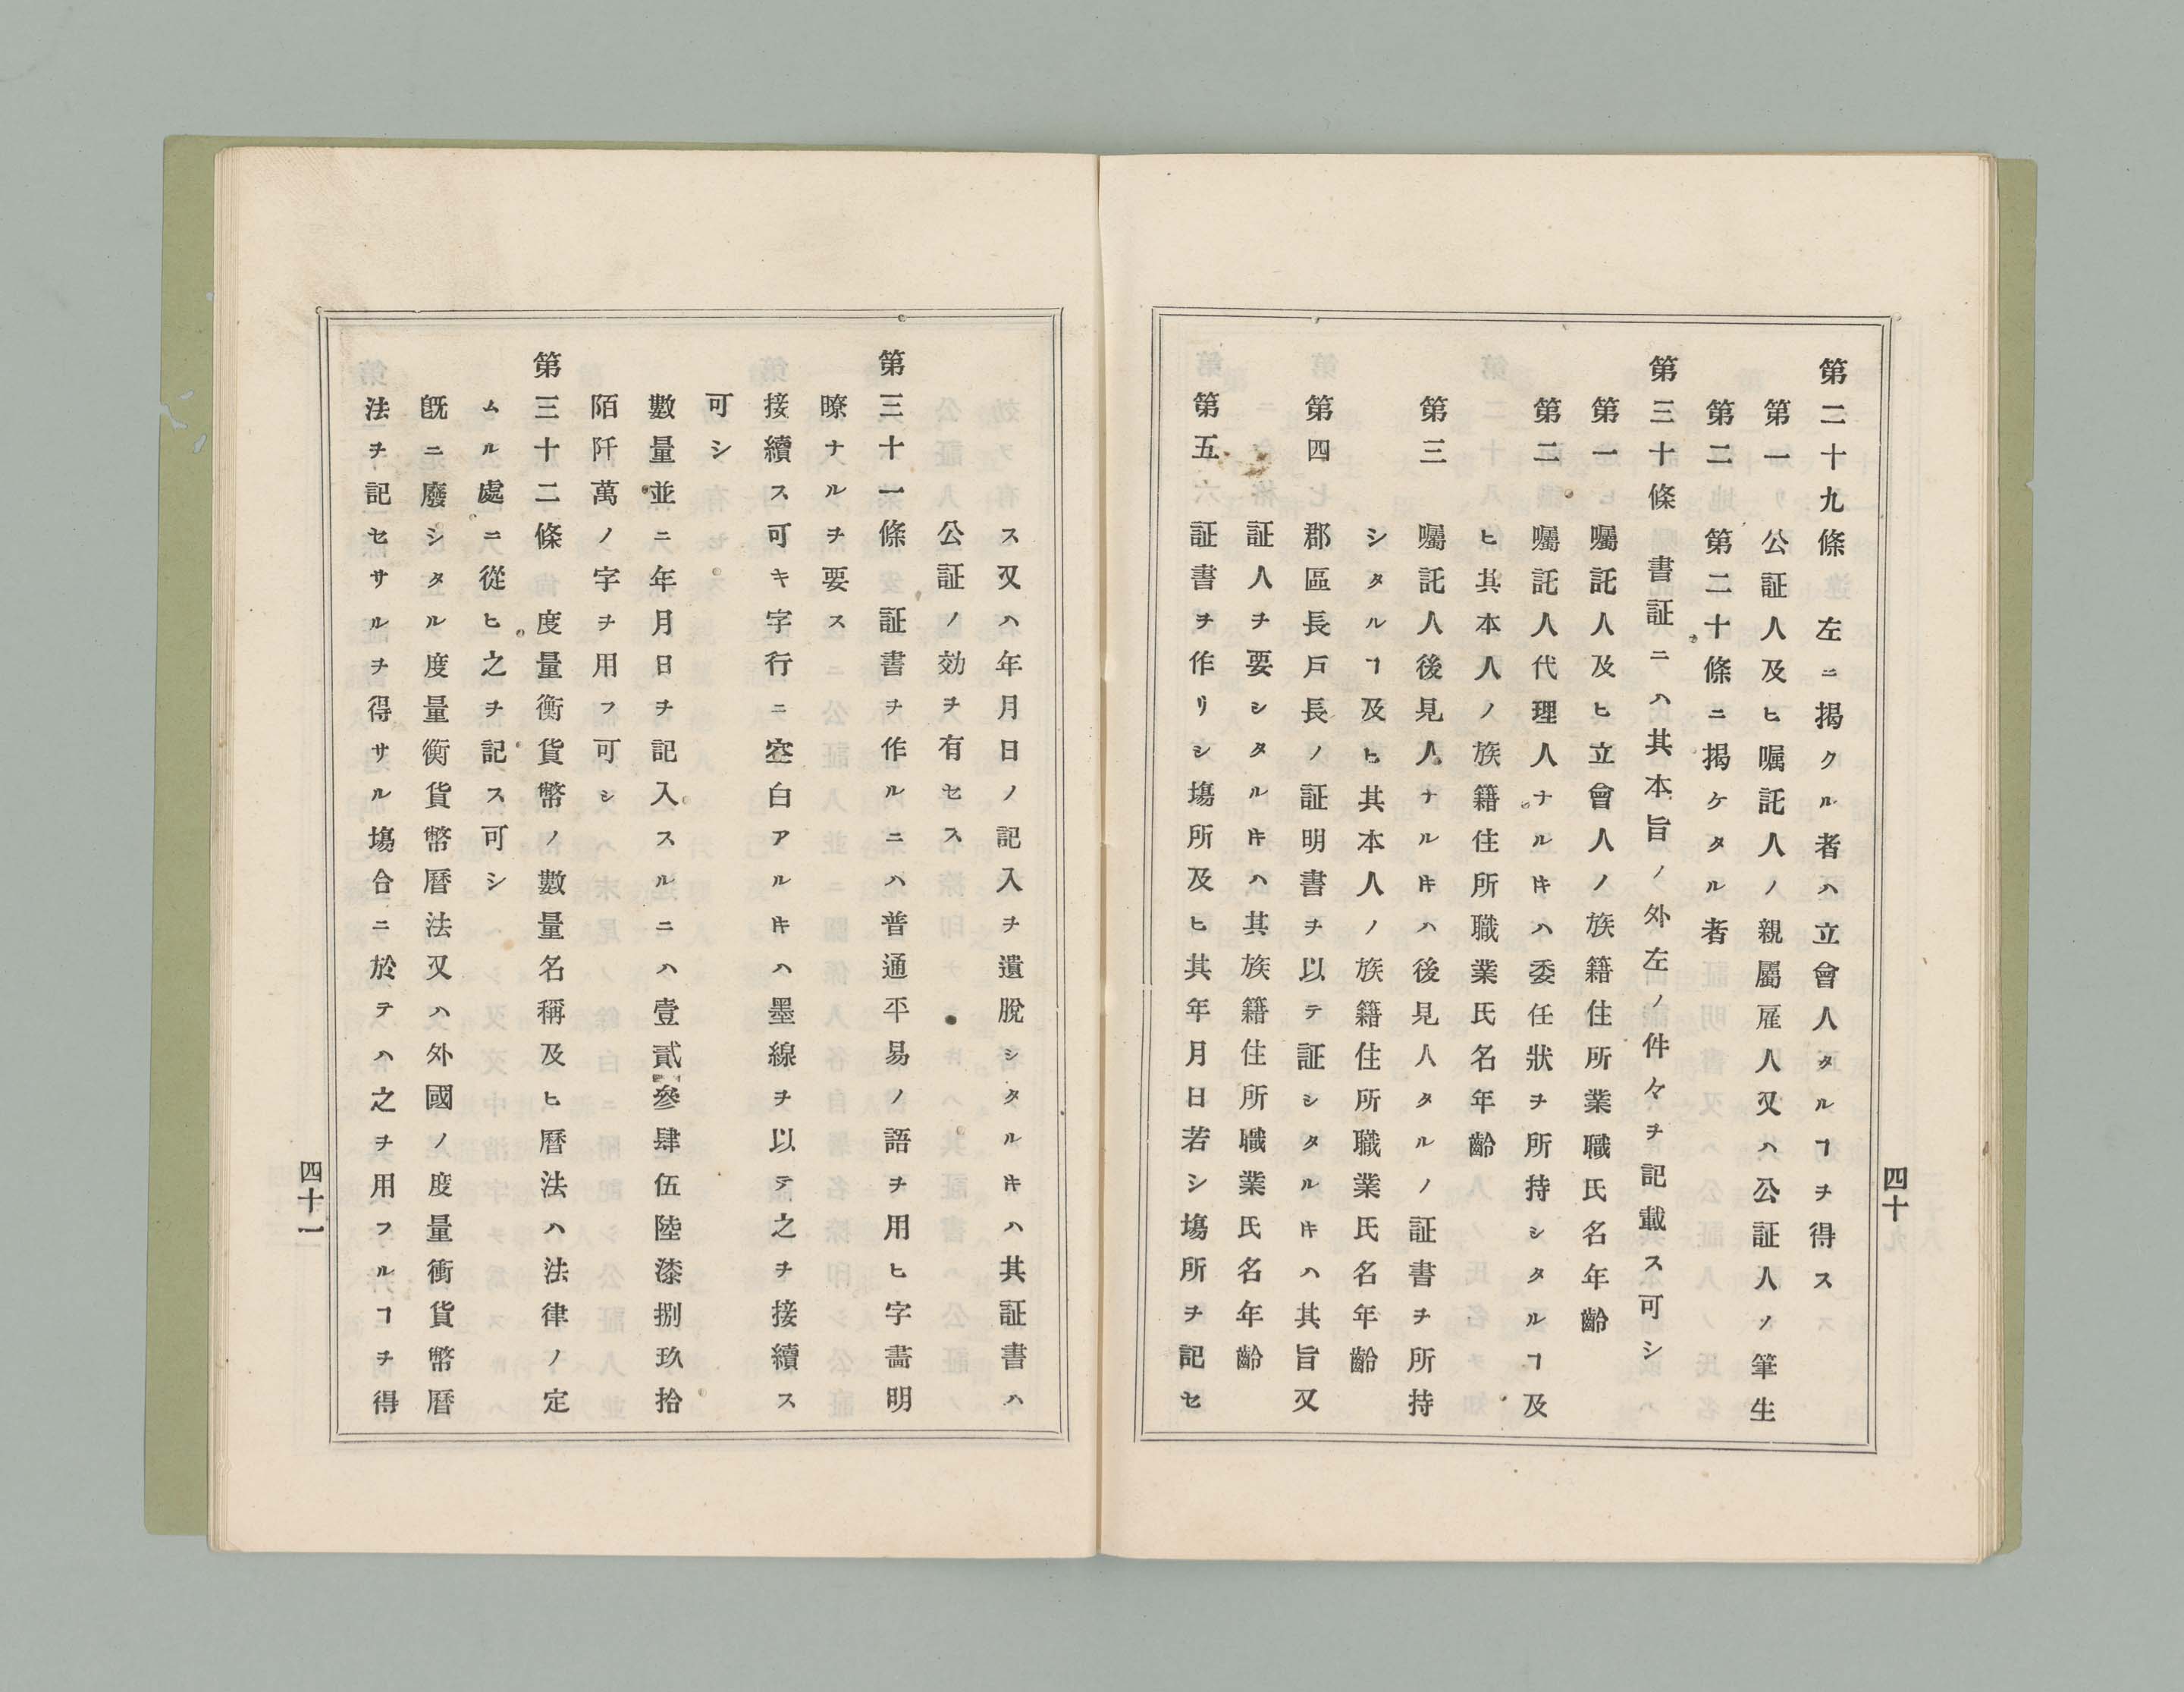 第二十九條 左ニ揭クル者ハ立會人タルヿヲ得ス
第一 公証人及ヒ嘱託人ノ親屬雇人又ハ公証人ノ筆生
第二 第二十條ニ揭ケタル者
第三十條 書証ニハ其本旨ノ外左ノ件々ヲ記載ス可シ
第一 囑託人及ヒ立會人ノ族籍住所業職氏名年齡
第二 囑託人代理人ナルヰハ委任狀ヲ所持シタルヿ及
ヒ其本人ノ族籍住所職業氏名年齡
第三 囑託人後見人ナルヰハ後見人タルノ証書ヲ所持
シタルヿ及ヒ其本人ノ族籍住所職業氏名年齡
第四 郡區長戶長ノ証明書ヲ以テ証シタルヰハ其旨又
証人ヲ要シタルヰハ其族籍住所職業氏名年齡
第五 証書ヲ作リシ塲所及ヒ其年月日若シ塲所ヲ記セ
四十
ス又ハ年月日ノ記入ヲ遺脫シタルヰハ其証書ハ
公証ノ効ヲ有セス
第三十一條 証書ヲ作ルニハ普通平易ノ語ヲ用ヒ字畵明
瞭ナルヲ要ス
接續ス可キ字行ニ空白アルヰハ墨線ヲ以テ之ヲ接續ス
可シ
數量並ニ年月日ヲ記入スルニハ壹貳參肆伍陸漆捌玖拾
陌阡萬ノ字ヲ用フ可シ
第三十二條 度量衡貨幣ノ數量名稱及ヒ曆法ハ法律ノ定
ムル處ニ從ヒ之ヲ記ス可シ
旣ニ廢シタル度量衡貨幣曆法又ハ外國ノ度量衡貨幣曆
法ヲ記セサルヲ得サル塲合ニ於テハ之ヲ用フルヿヲ得
四十一